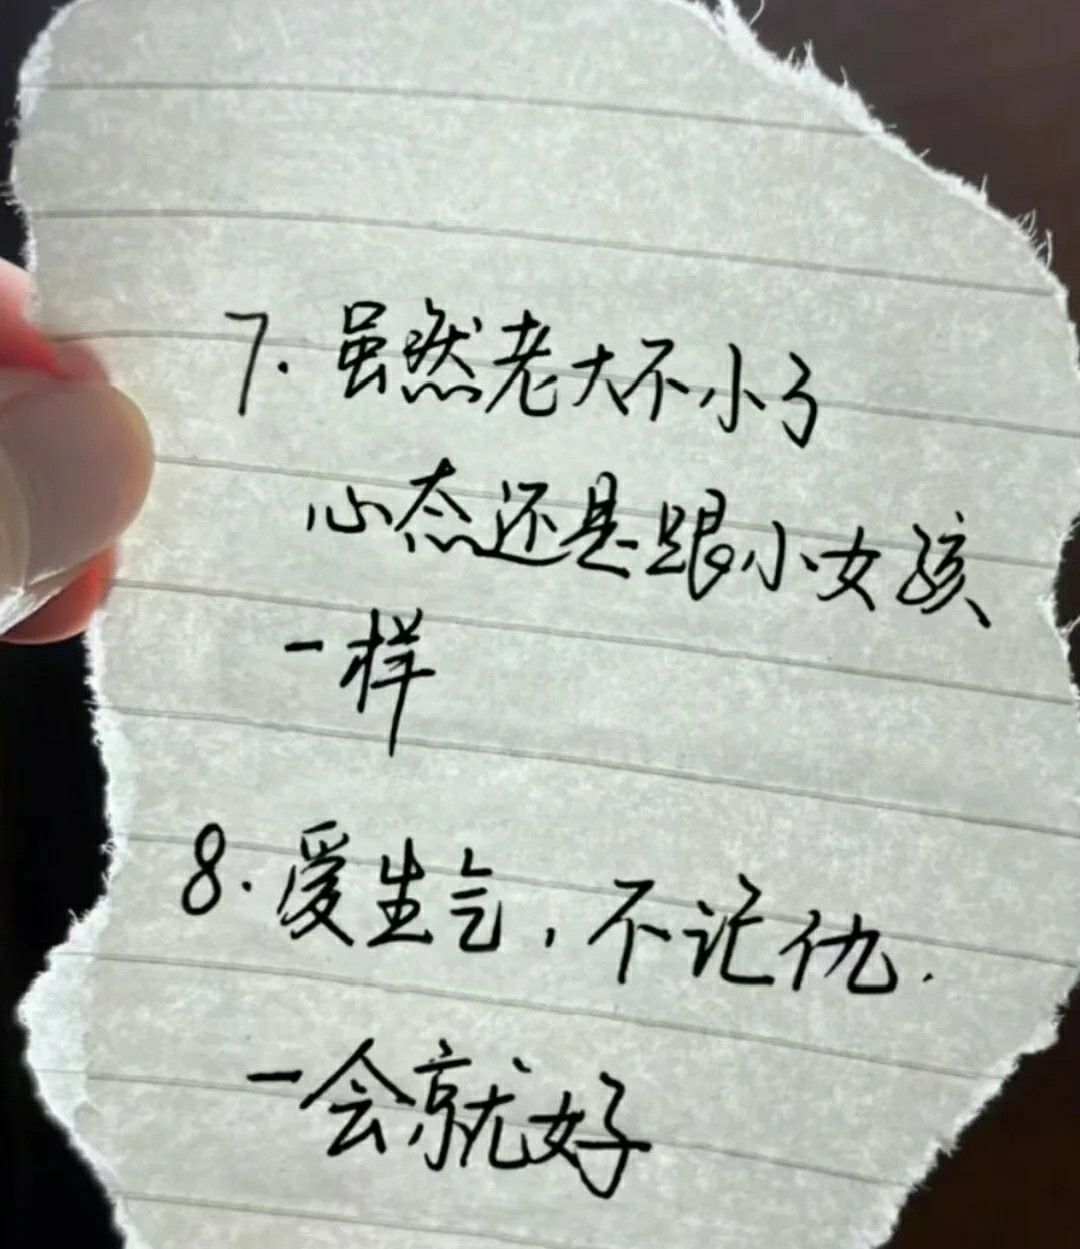 7.虽然老大不小了
心态还是跟小女孩
一样
8.爱生气,不记仇.
一会就好